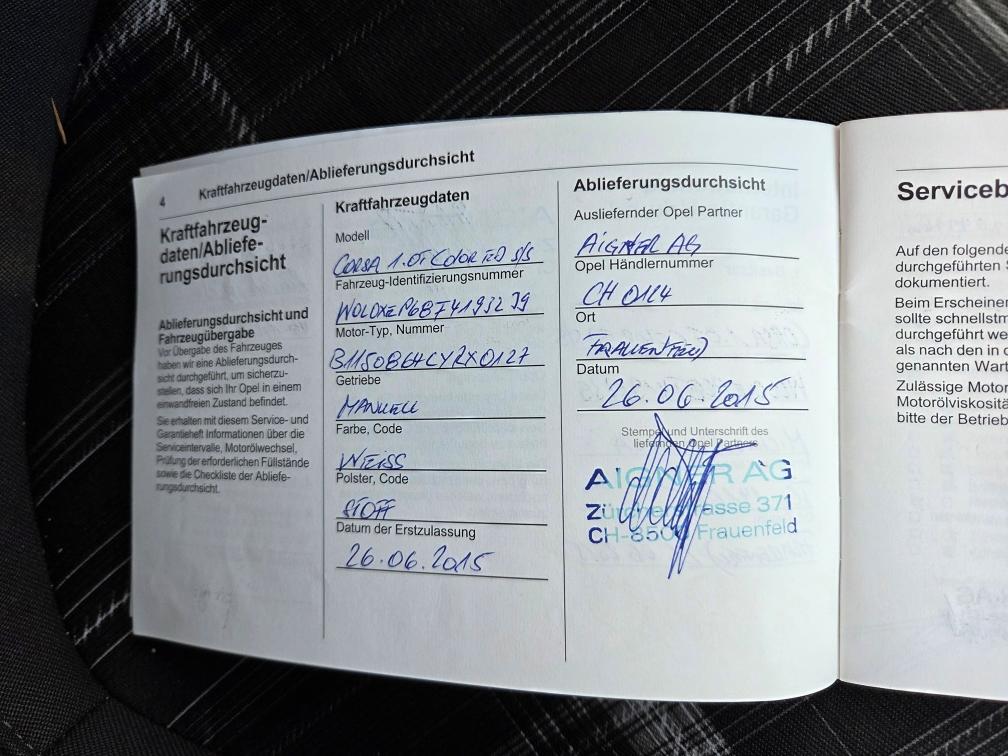 4 Kraftfahrzeugdaten/Ablieferungsdurchsicht
Kraftfahrzeug-
daten/Abliefe-
rungsdurchsicht
Ablieferungsdurchsicht und
Fahrzeugübergabe
Vor Übergabe des Fahrzeuges
haben wir eine Ablieferungsdurch-
sicht durchgeführt, um sicherzu-
stellen, dass sich Ihr Opel in einem
einwandfreien Zustand befindet.
Sie erhalten mit diesem Service- und
Garantieheft Informationen über die
Serviceintervalle, Motorölwechsel,
Prüfung der erforderlichen Füllstände
sowie die Checkliste der Abliefe-
rungsdurchsicht.
Kraftfahrzeugdaten
Modell
CORSA 1.0T COLOR ED S/S
Fahrzeug-Identifizierungsnummer
Motor-Typ. Nummer
Getriebe
MANUELL
Farbe, Code
WEISS
Polster, Code
STOFF
Datum der Erstzulassung
26.06.2015
Ablieferungsdurchsicht
Ausliefernder Opel Partner
AIGNER AG
Opel Händlernummer
CH 0114
Ort
FRAUENFELD
Datum
26.06.2015
Stempel und Unterschrift des
liefernden Opel Partners
AIGNER AG
Zürcherstrasse 371
CH-8500 Frauenfeld
Serviceb
Auf den folgende
durchgeführten S
dokumentiert.
Beim Erscheinen
sollte schnellstm
durchgeführt we
als nach den in d
genannten Wart
Zulässige Motor
Motorölviskositä
bitte der Betrieb